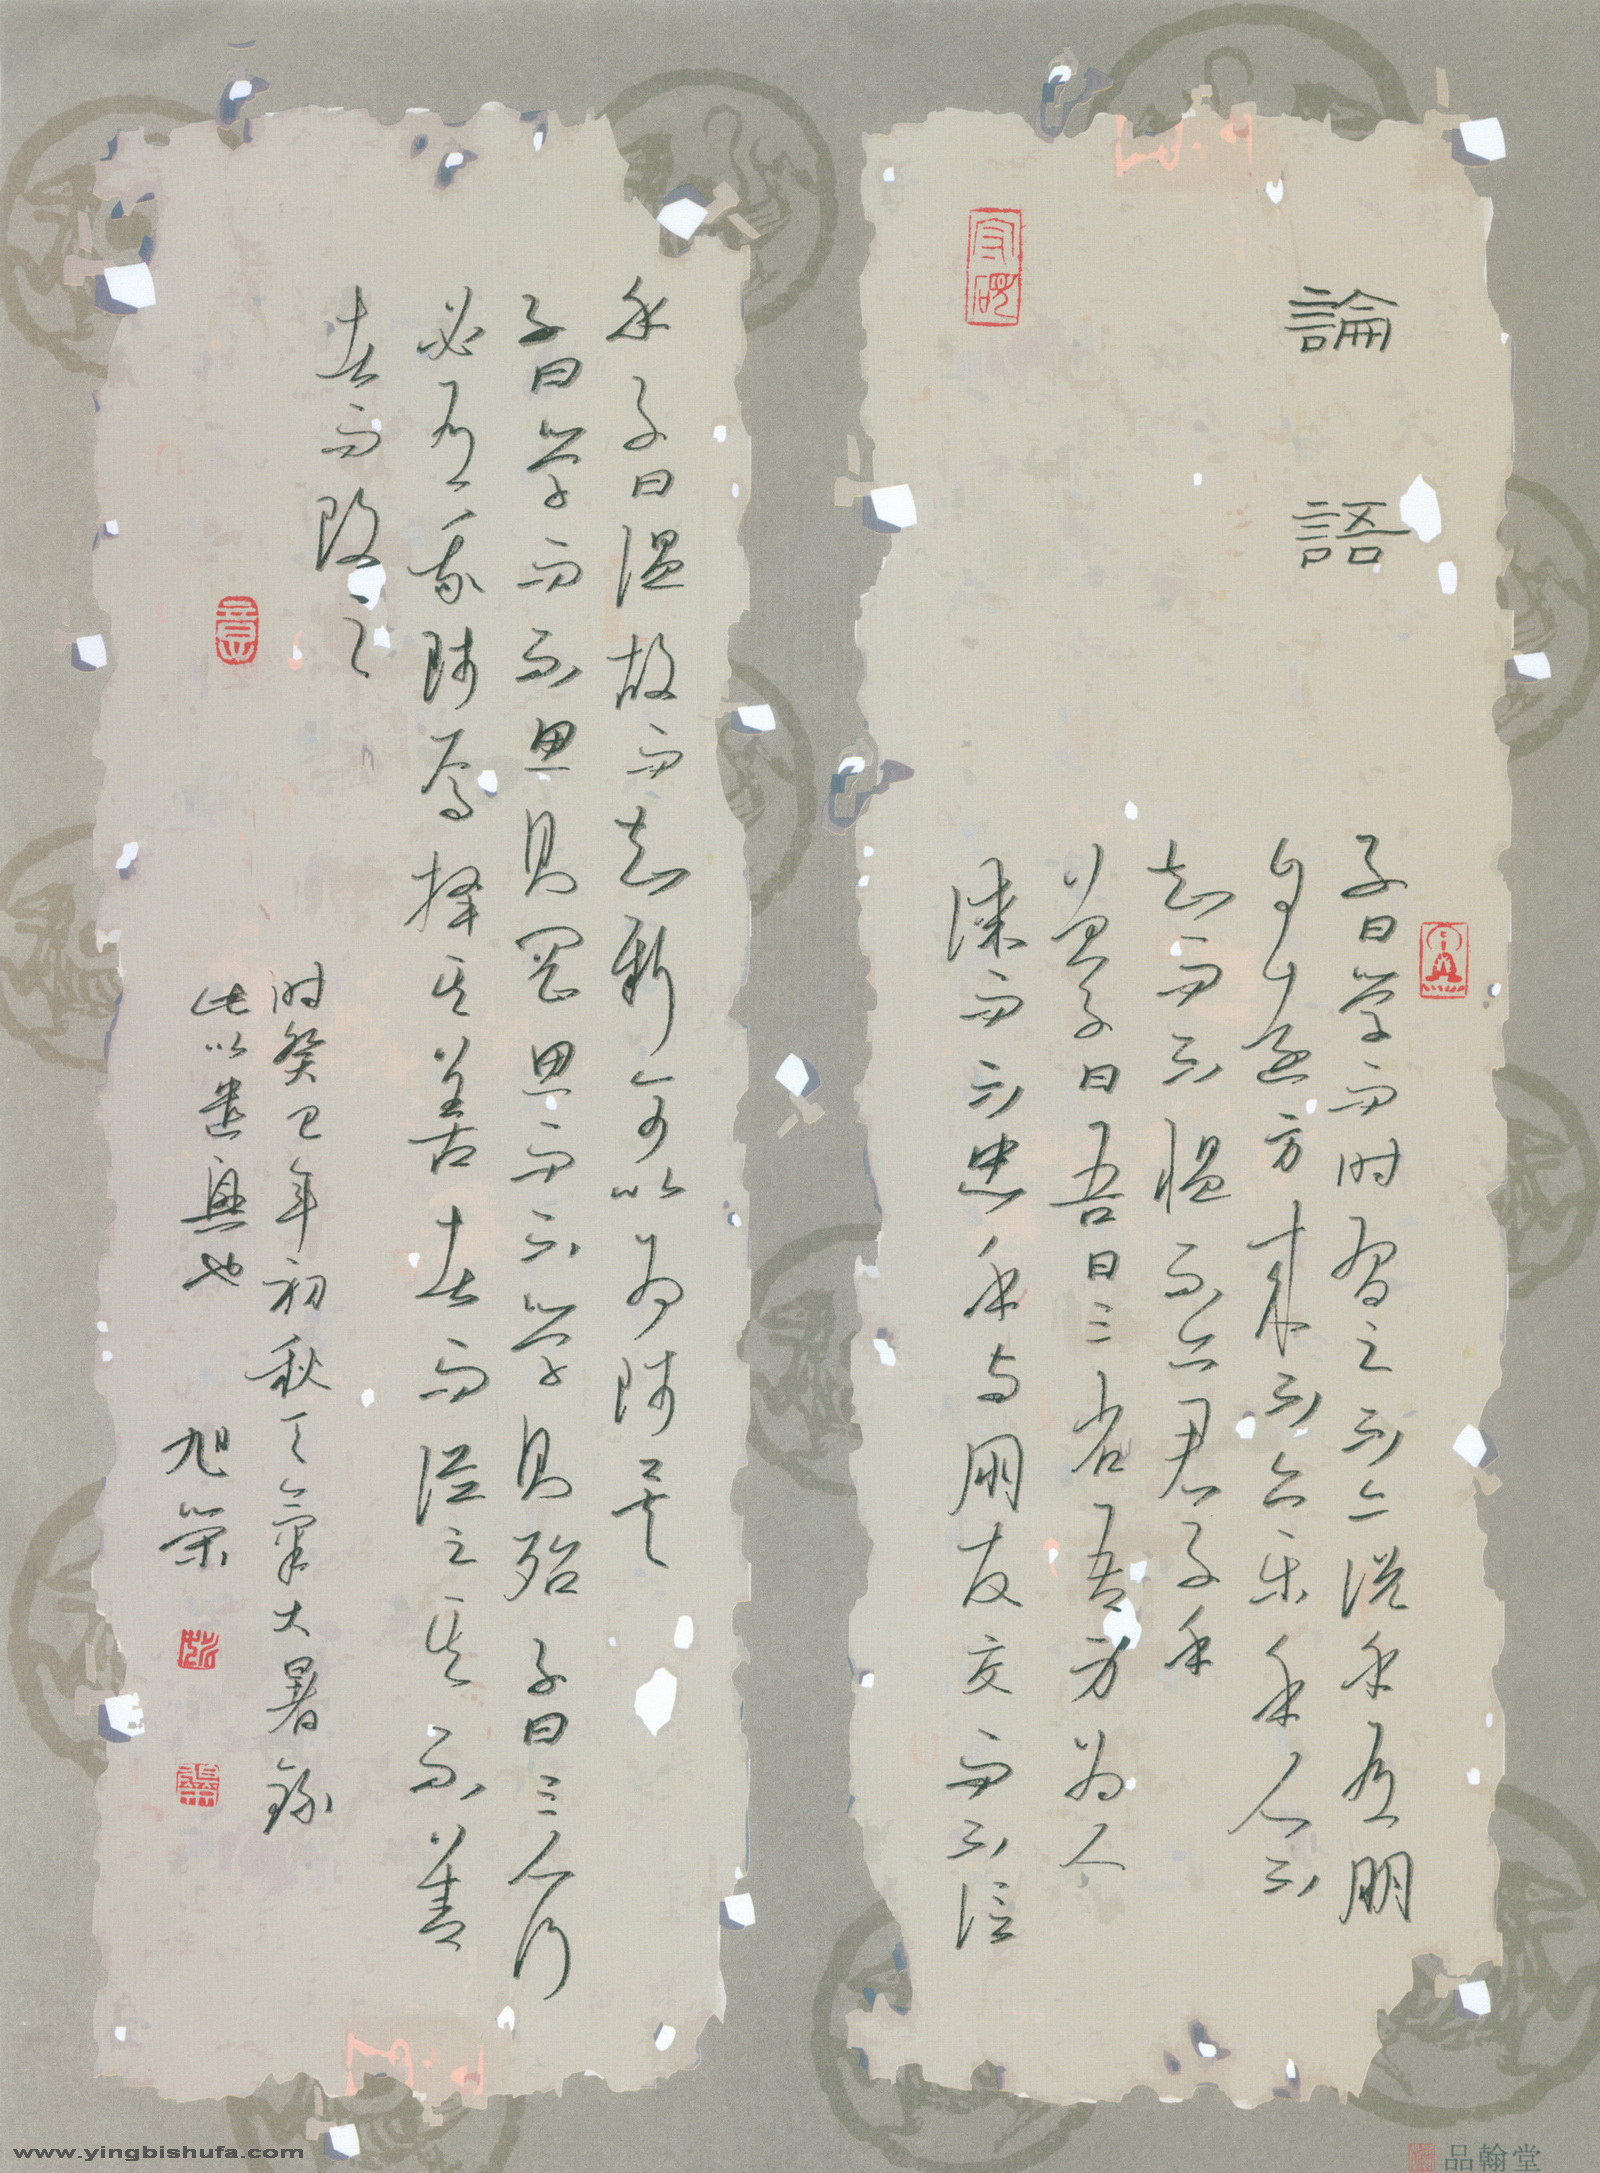 論語
子曰学而时習之不亦说乎有朋
自远方来不亦乐乎人不
知而不愠不亦君子乎
曾子曰吾日三省吾身为人
谋而不忠乎与朋友交而不信
乎子曰温故而知新可以为師矣
子曰学而不思則罔思而不学則殆 子曰三人行
必有我師焉择其善者而從之其不善
者而改之
时癸巳年初秋天氣大暑録
此以遣興也 旭
www.yingbishufa.com
品翰堂